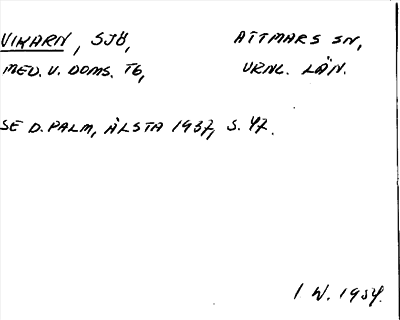 VIKARN, SJÖ, ATTMARS SN,
MED. V. DOMS. TG, VRNL. LÄN.
SE D. PALM, ÄLSTA 1937, S. 47.
I W. 1954.